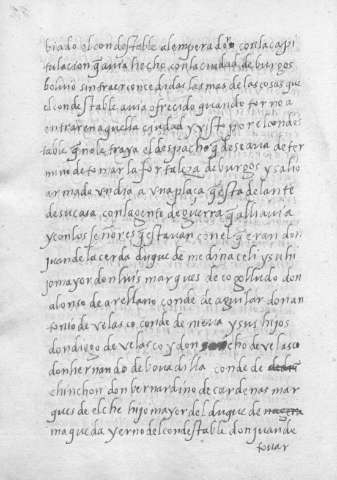 biado el condestable al emperador con la capi
tulacion q̃ avia hecho con la ciudad de burgos
bolvio sin traer concedidas las mas de las cosas que
el condestable avia ofrecido quando torno a
entrar en aquella ciudad y visto por el condes
table q̃ no le traya el despacho q̃ deseava de ter
mino de tomar la fortaleza de burgos y salio
armado un dia a una plaça q̃ esta delante
de su casa con la gente de guerra q̃ alli avia
y con los señores q̃ estavan con el q̃ eran don
juan de la cerda duque de medina celi y su hi
jo mayor don luis marques de cogolludo don
alonso de arellano conde de aguilar don an
tonio de velasco conde de nieva y sus hijos
don diego de velasco y don cho de velasco
don hernando de bovadilla conde de
chinchon don bernardino de cardenas mar
ques de elche hijo mayor del duque de
maqueda yerno del condestable don juan de
tovar